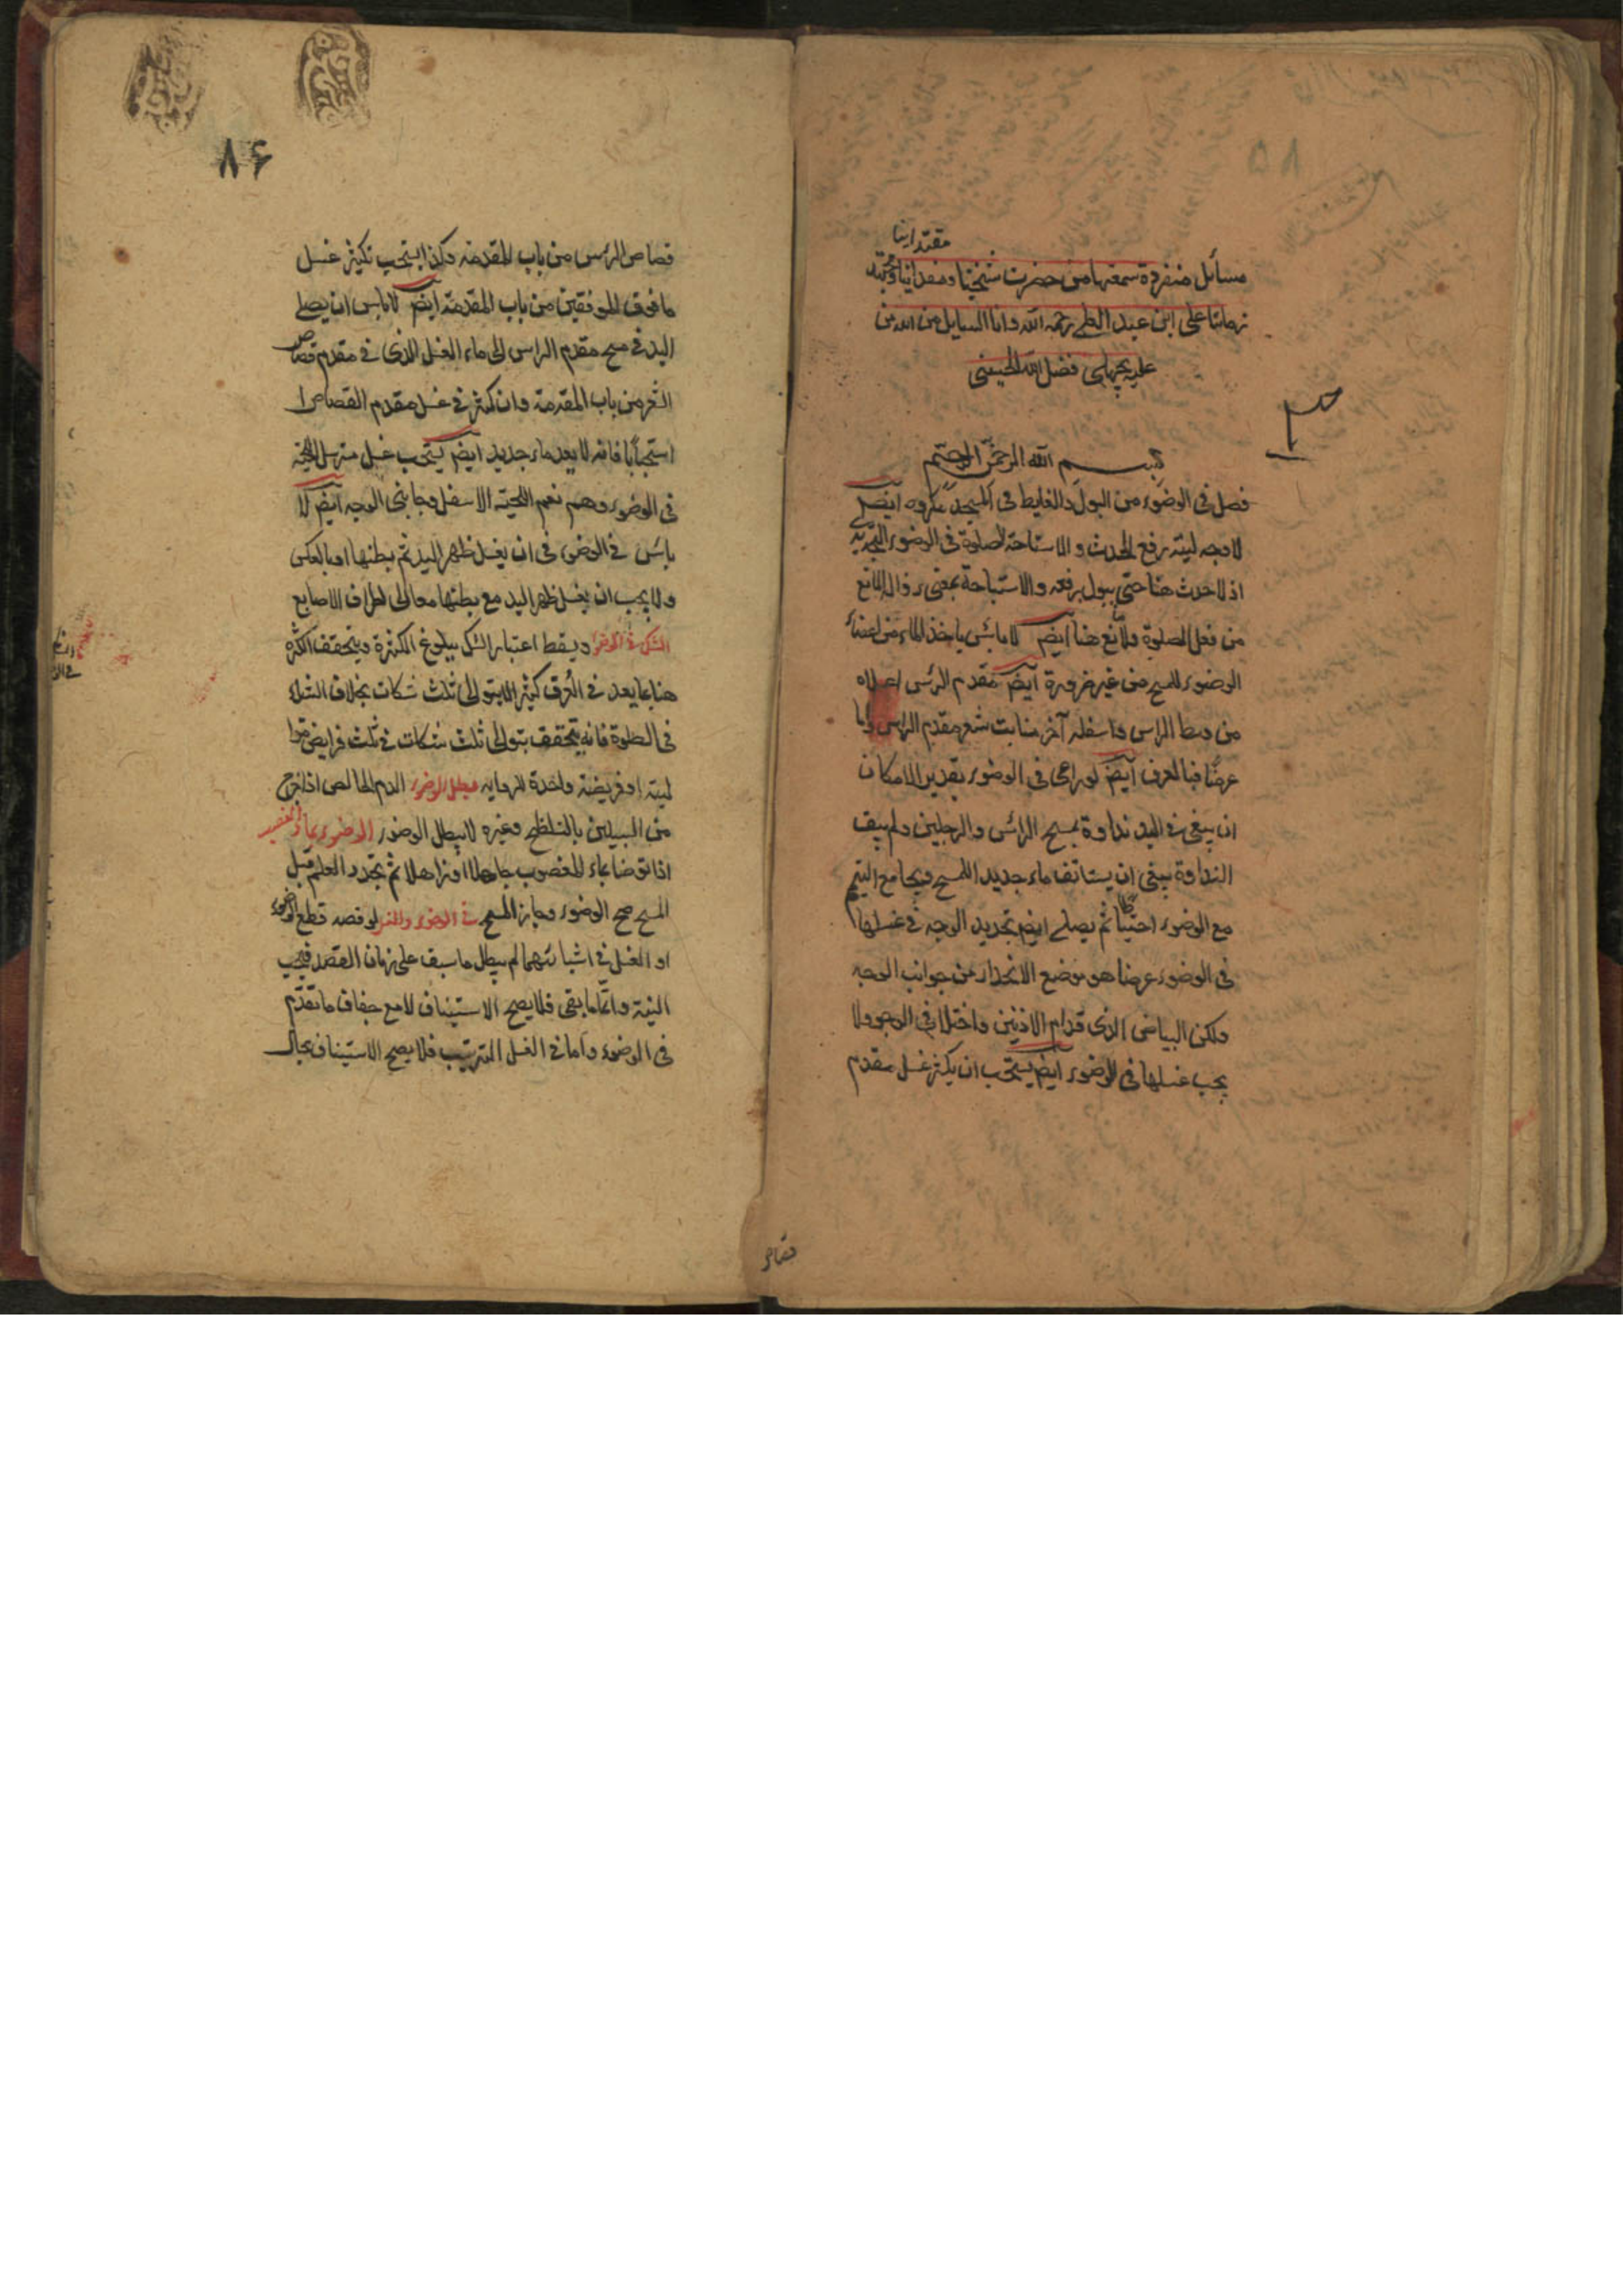 ۵۸
مقتدانا
مسائل متفرقة سمعتها من حضرت شيخنا ومقدانا ومجتهد
زماننا على ابن عبد العلي رحمه الله وانا السايل من الله من
عليه فضل الله الحسيني
۳
بسم الله الرحمن الرحيم
فصل في الوضوء من البول والغايط في المسجد مكروه ايضم
لا وجه لنية رفع الحدث والاستباحة للصلوة في الوضوء التجديدي
اذ لا حدث هنا حتى يرفعه والاستباحة بمعنى زوال المانع
من فعل الصلوة ولا مانع هنا ايضم لا باس باخذ الماء من اعضاء
الوضوء للمسح من غير ضرورة ايضم مقدم الرئس اعلاه
من وسط الراس واسفله آخر منابت شعر مقدم الراس واما
عرضا فبالعرف ايضم لو راعى في الوضوء بقدير الامكان
ان يبقى في اليد نداوة بمسح الرائس والرجلين ولم يبق
النداوة ينبغي ان يستانف ماء جديد اللمسح ويجامع التيمم
مع الوضوء احتياطا ثم يصلي ايضم تحديد الوجه في غسلها
في الوضوء عرضا هو موضع الانحدار من جوانب الوجه
ولكن البياض الذى قدام الاذنين داخلان في الوجه ولا
يجب غسلها في الوضوء ايضم يستحب ان يكثر غسل مقدم
قصاص
۸۶
قصاص الرئس من باب المقدمة وكذا يستحب تكثير غسل
ما فوق المرفقين من باب المقدمة ايضم لا باس ان يصل
اليد في مسح مقدم الراس الى ماء الغسل الذى في مقدم قصاص
الشعر من باب المقدمة وان كثر في غسل مقدم القصاص
استحبابا فانه لا يعد ماء جديد ايضم يستحب غسل مسترسل اللحية
في الوضوء وهم نعم اللحية الاسفل وجانبى الوجه ايضم لا
باس في الوضوء في ان يغسل ظهر اليد ثم بطنها او بالعكس
ولا يجب ان يغسل ظهر اليد مع بطنها معا الى اطراف الاصابع
الشك في الوضوء ويسقط اعتبار الشك ببلوغ الكثرة ويتحقق الكثرة
هنا بما يعد في العرف كثيرا لا بتوالى ثلث شكات بخلاف الشك
في الصلوة فانه يتحقق بتوالى ثلث شكات في ثلث فرايض
او فريضة واحدة للرواية مبطل الوضوء الدم الخالص اذا خرج
من السبيلين وغيره لا يبطل الوضوء الوضوء بماء الغصب
اذا توضا بماء المغصوب جاهلا او ذاهلا ثم تجدد العلم قبل
المسح صح الوضوء وجاز المسح في الوضوء والغسل لو قصد قطع الوضوء
او الغسل في اثنائهما لم يبطل ما سبق على زمان القصد فيجب
النية واتمام ما بقى فلا يصح الاستيناف الا مع جفاف ما تقدم
في الوضوء واما في الغسل الترتيب فلا يصح الاستيناف بحال